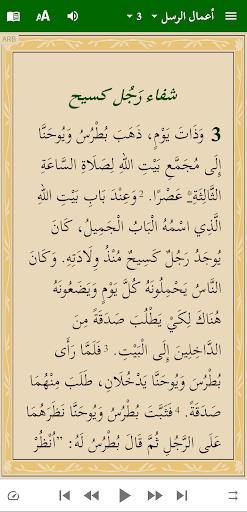 أعمال الرسل 3
ARB
شفاء رَجُل كسيح
3 وَذَاتَ يَوْمٍ، ذَهَبَ بُطْرُسُ وَيُوحَنَّا
إِلَى مُجَمَّعِ بَيْتِ اللهِ لِصَلَاةِ السَّاعَةِ
الثَّالِثَةِ* عَصْرًا. 2 وَعِنْدَ بَابِ بَيْتِ اللهِ
الَّذِي اسْمُهُ الْبَابُ الْجَمِيلُ، كَانَ
يُوجَدُ رَجُلٌ كَسِيحٌ مُنْذُ وِلَادَتِهِ. وَكَانَ
النَّاسُ يَحْمِلُونَهُ كُلَّ يَوْمٍ وَيَضَعُونَهُ
هُنَاكَ لِكَيْ يَطْلُبَ صَدَقَةً مِنَ
الدَّاخِلِينَ إِلَى الْبَيْتِ. 3 فَلَمَّا رَأَى
بُطْرُسَ وَيُوحَنَّا يَدْخُلَانِ، طَلَبَ مِنْهُمَا
صَدَقَةً. 4 فَثَبَّتَ بُطْرُسُ وَيُوحَنَّا نَظَرَهُمَا
عَلَى الرَّجُلِ ثُمَّ قَالَ بُطْرُسُ لَهُ: "اُنْظُرْ